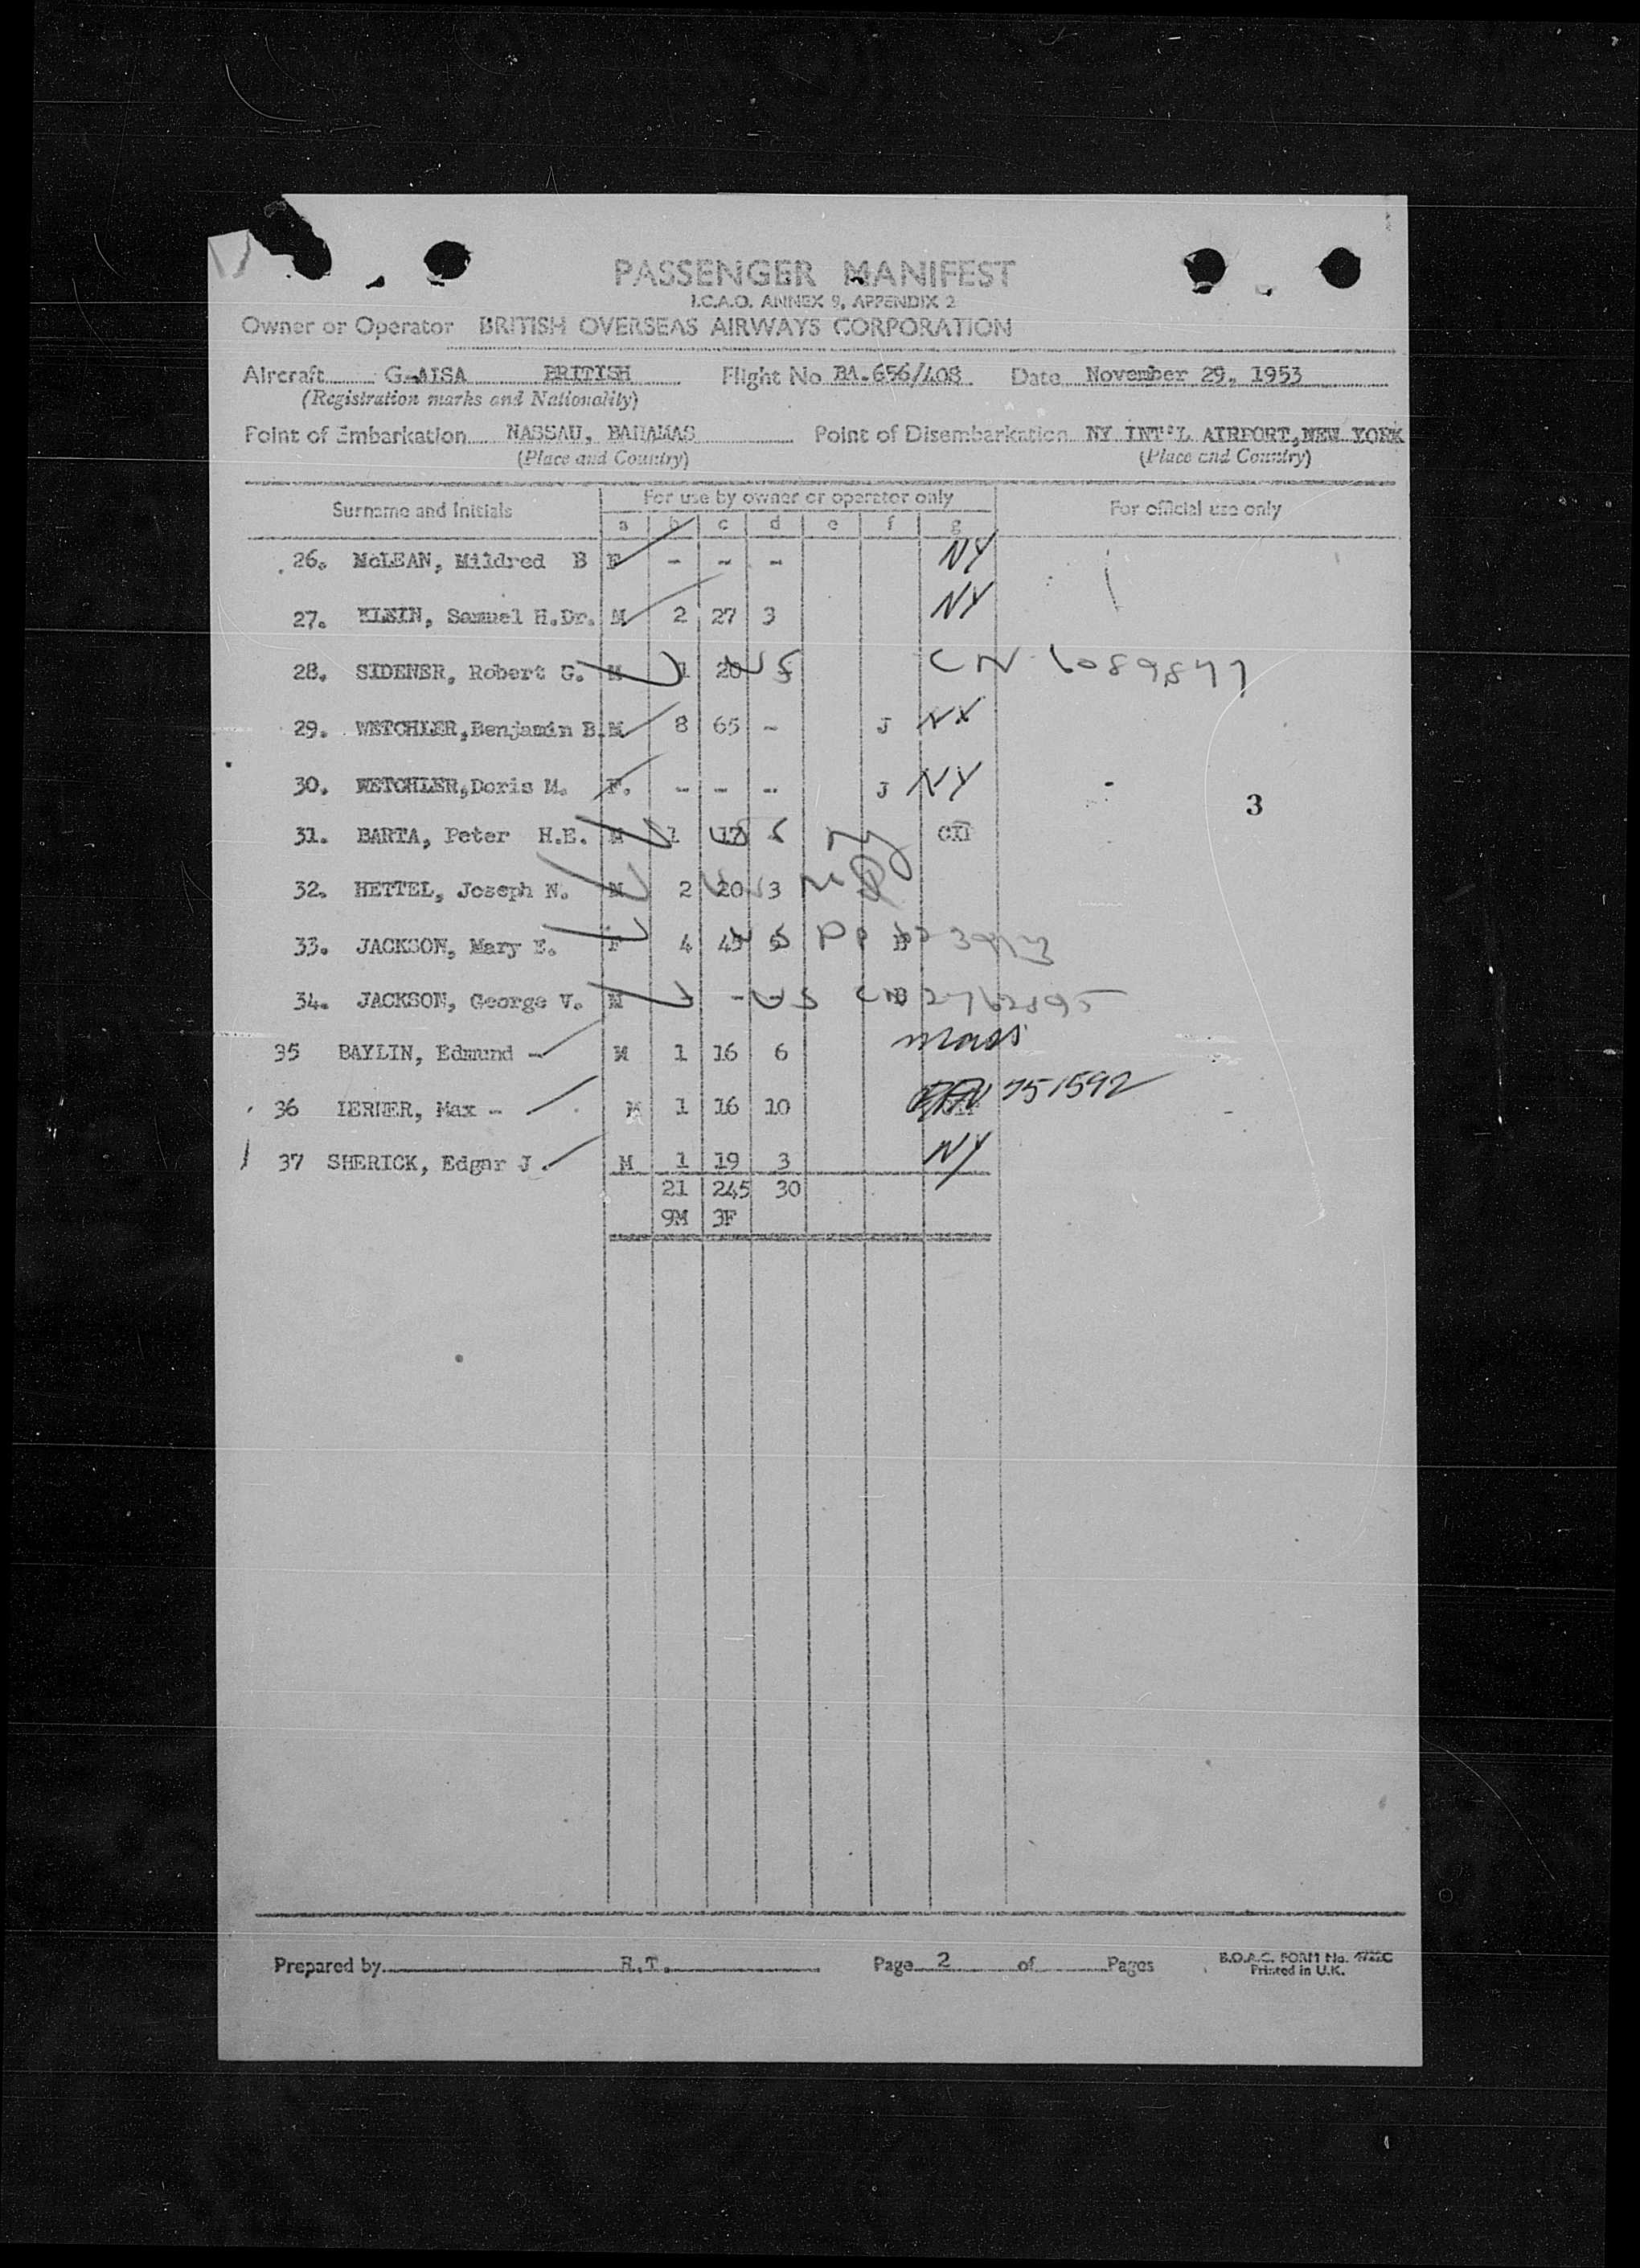 PASSENGER MANIFEST
I.C.A.O. ANNEX 9, APPENDIX 2
Owner or Operator BRITISH OVERSEAS AIRWAYS CORPORATION
Aircraft G-AISA BRITISH Flight No BA.656/408 Date November 29, 1953
(Registration marks and Nationality)
Point of Embarkation NASSAU, BAHAMAS Point of Disembarkation NY INT'L AIRPORT, NEW YORK
(Place and Country) (Place and Country)
Surname and Initials For use by owner or operator only For official use only
a b c d e f g
26. McLEAN, Mildred B F - - - NY
27. KLEIN, Samuel H.Dr. M 2 27 3 NY
28. SIDENER, Robert G. M 1 20 CN 6089877
29. WETCHLER,Benjamin B. M 8 65 - J NY
30. WETCHLER,Doris M. F. - - - J NY
3
31. BARTA, Peter H.E. M 1 17 NY
32. HETTEL, Joseph N. M 2 20 3
33. JACKSON, Mary E. F 4 45
34. JACKSON, George V. M - -
35 BAYLIN, Edmund - M 1 16 6 Mass
36 LERNER, Max - M 1 16 10 751592
37 SHERICK, Edgar J. M 1 19 3 NY
21 245 30
9M 3F
Prepared by R.T. Page 2 of Pages B.O.A.C. FORM No.
Printed in U.K.